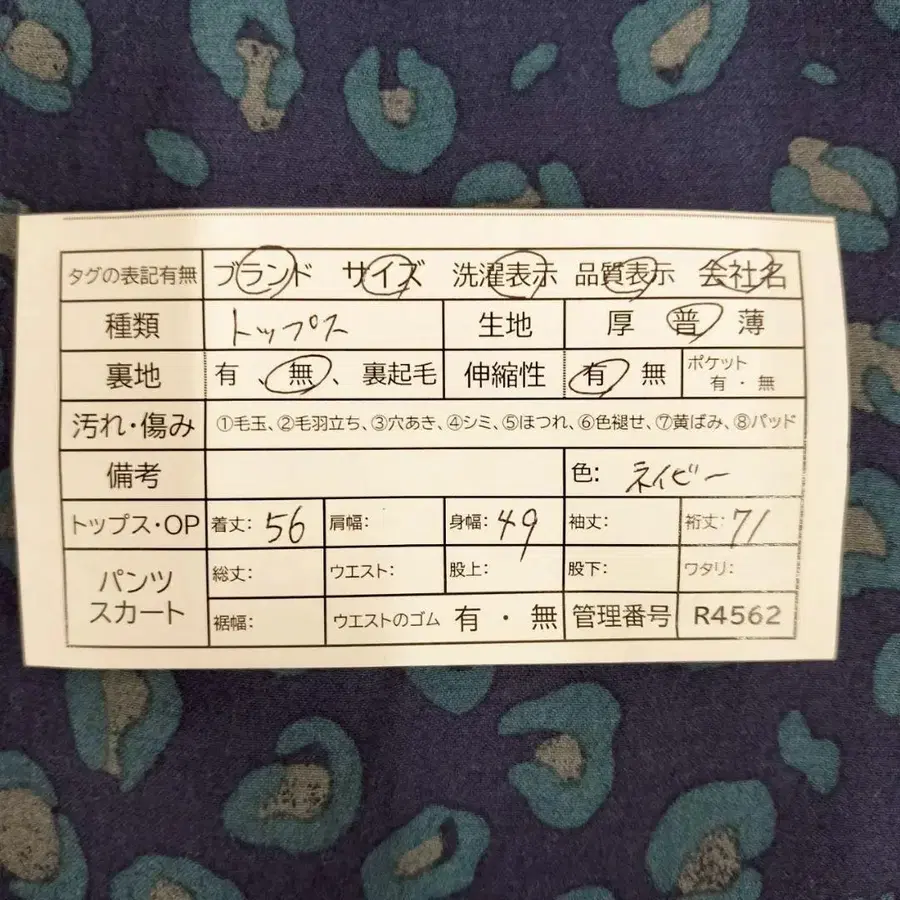 タグの表記有無 ブランド サイズ 洗濯表示 品質表示 会社名
種類 トップス 生地 厚 普 薄
裏地 有 、 無 、 裏起毛 伸縮性 有 無 ポケット 有 ・ 無
汚れ・傷み ①毛玉、②毛羽立ち、③穴あき、④シミ、⑤ほつれ、⑥色褪せ、⑦黄ばみ、⑧パッド
備考 色: ネイビー
トップス・OP 着丈: 56 肩幅: 身幅: 49 袖丈: 裄丈: 71
パンツ スカート 総丈: ウエスト: 股上: 股下: ワタリ:
裾幅: ウエストのゴム 有 ・ 無 管理番号 R4562